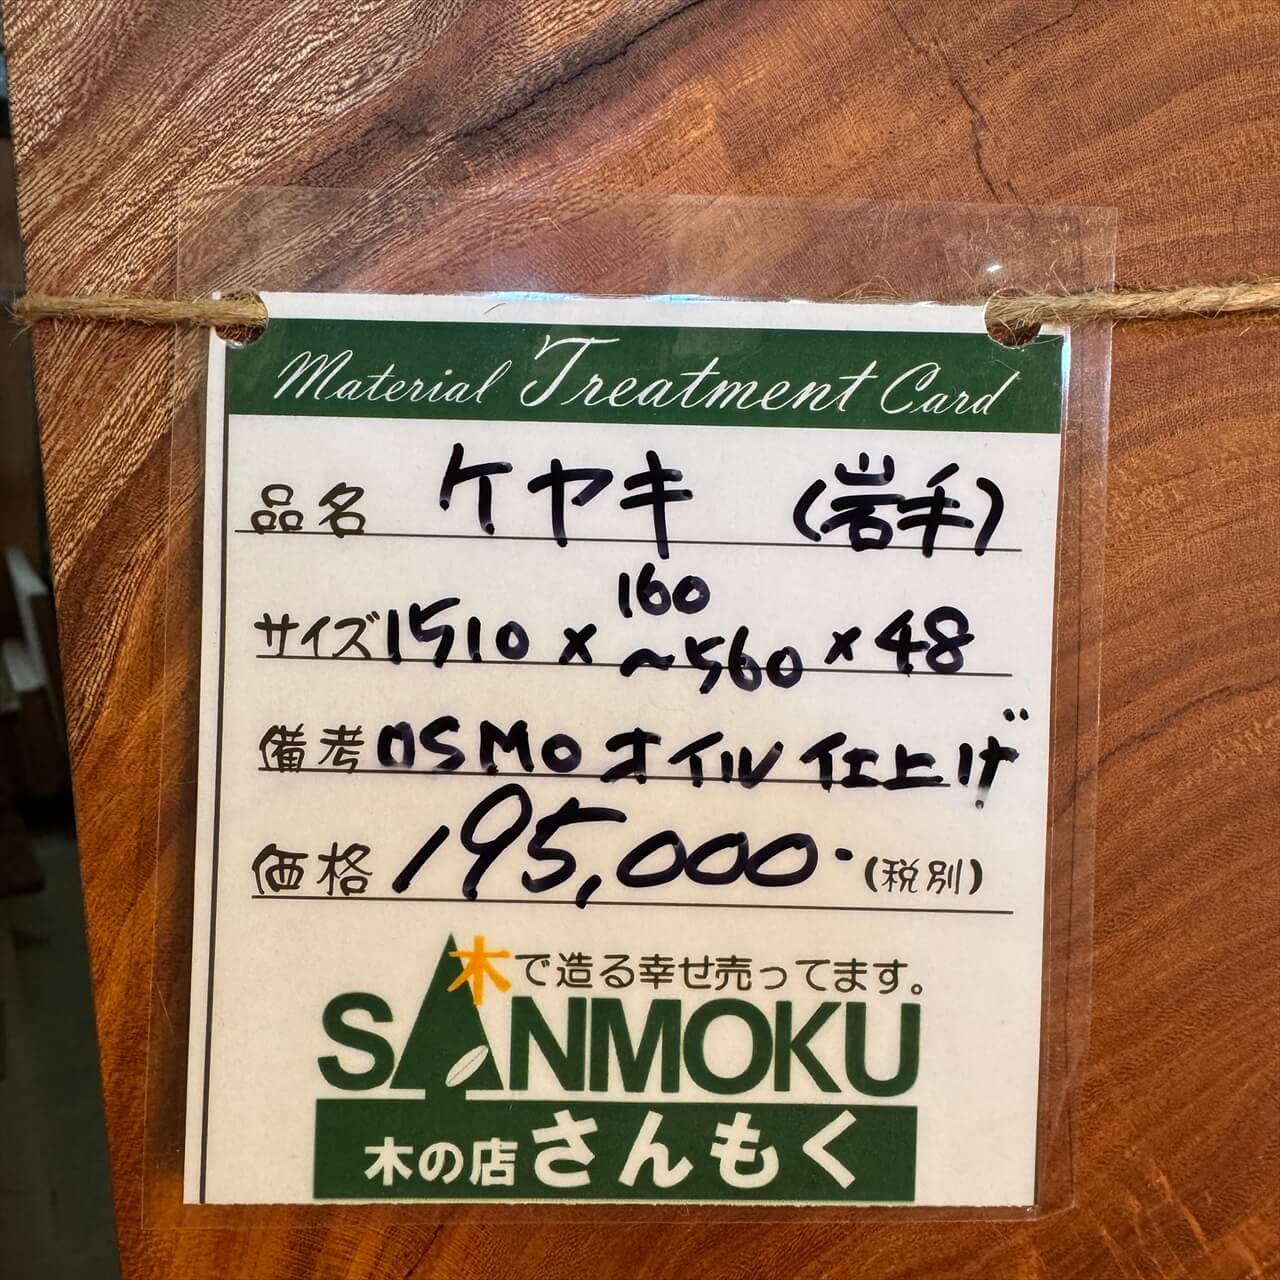 Material Treatment Card
品名 ケヤキ (岩手)
サイズ 1510 × 160 ~560 × 48
備考 OSMO オイル 仕上げ
価格 195,000. (税別)
木で造る幸せ売ってます。
SANMOKU
木の店 さんもく